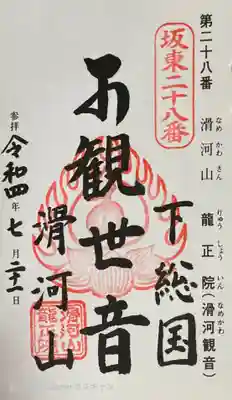 第二十八番　滑河山　龍正院(滑河観音)
なめかわさん　りゅうしょういん　なめかわ
坂東二十八番
下総国
観世音
滑河山
参拝　令和四年七月二十一日